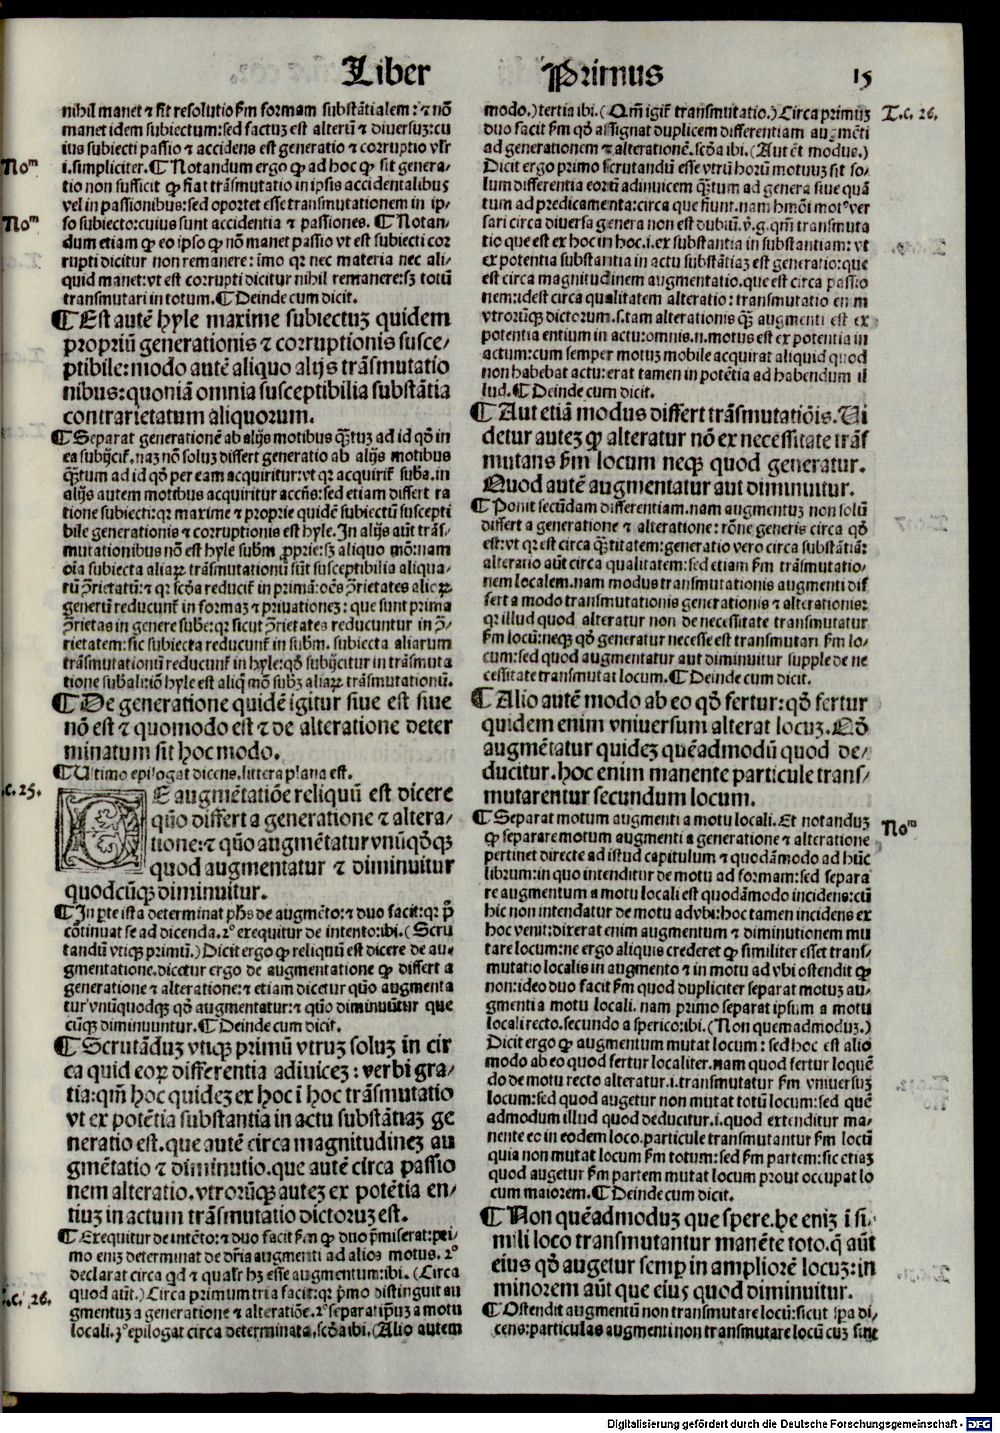 Liber Primus 15
nihil manet ⁊ sit resolutio ẜm formam substãtialem: ⁊ nõ
manet idem subiectum: sed factuʒ est alterũ ⁊ diuersuʒ: cu
ius subiecti passio ⁊ accidens est generatio ⁊ corruptio vłr
i. simpliciter. ¶ Notandum ergo ꝙ ad hoc ꝙ sit genera/
tio non sufficit ꝙ fiat trãsmutatio in ipsis accidentalibus
vel in passionibus: sed oportet esse transmutationem in ip/
so subiecto: cuius sunt accidentia ⁊ passiones. ¶ Notan/
dum etiam ꝙ eo ipso ꝙ nõ manet passio vt est subiecti cor
rupti dicitur non remanere: imo qꝛ nec materia nec ali/
quid manet: vt est corrupti dicitur nihil remanere: sʒ totũ
transmutari in totum. ¶ Deinde cum dicit.
¶ Est autẽ hyle maxime subiectuʒ quidem
propriũ generationis ⁊ corruptionis susce/
ptibile: modo autẽ aliquo alijs trãsmutatio
nibus: quoniã omnia susceptibilia substãtia
contrarietatum aliquorum.
¶ Separat generationẽ ab alijs motibus quãtuʒ ad id qď in
ea subijcit᷑. naʒ nõ soluʒ differt generatio ab alijs motibus
quãtum ad id qď per eam acquiritur: vt qꝛ acquirit᷑ suba. in
alijs autem motibus acquiritur accñs: sed etiam differt ra
tione subiecti: qꝛ maxime ⁊ proprie quidẽ subiectũ suscepti
bile generationis ⁊ corruptionis est hyle. In alijs aũt trãs/
mutationibus nõ est hyle subm̃ proprie: sʒ aliquo mõ: nam
oĩa subiecta aliaꝝ trãsmutationũ sũt susceptibilia aliqua/
rũ ꝯrietatũ: ⁊ qꝛ scďa reducũt᷑ in primã: oẽs ꝯrietates alioꝝ
generũ reducunt᷑ in formaʒ ⁊ priuationeʒ: que sunt prima
ꝯrietas in genere sube: qꝛ sicut ꝯrietates reducuntur in ꝯ/
rietatem: sic subiecta reducunt᷑ in subm̃. subiecta aliarum
trãsmutationũ reducunt᷑ in hyle: qď subijcitur in trãsmuta
tione subali: iõ hyle est aliq̃ mõ subʒ aliaꝝ trãsmutationũ.
¶ De generatione quidẽ igitur siue est siue
nõ est ⁊ quomodo est ⁊ de alteratione deter
minatum sit hoc modo.
¶ Ultimo epilogat dicens. littera plana est.
DE augmẽtatiõe reliquũ est dicere
quõ differt a generatione ⁊ altera/
tione: ⁊ quõ augmẽtatur vnũqďqʒ
quod augmentatur ⁊ diminuitur
quodcũqʒ diminuitur.
¶ In ꝑte ista determinat phs de augmẽto: ⁊ duo facit: qꝛ p̃
cõtinuat se ad dicenda. 2º exequitur de intento: ibi. (Scru
tandũ vtiqʒ primũ.) Dicit ergo ꝙ reliquũ est dicere de au/
gmentatione. dicetur ergo de augmentatione ꝙ differt a
generatione ⁊ alteratione: ⁊ etiam dicetur quõ augmenta
tur vnũquodqʒ qď augmentatur: ⁊ quõ diminuũtur que
cũqʒ diminuuntur. ¶ Deinde cum dicit.
¶ Scrutãduʒ vtiqʒ primũ vtruʒ soluʒ in cir
ca quid eoꝝ differentia adiuiceʒ: verbi gra/
tia: qm̃ hoc quideʒ ex hoc ĩ hoc trãsmutatio
vt ex potẽtia substantia in actu substãtiaʒ ge
neratio est. que autẽ circa magnitudineʒ au
gmẽtatio ⁊ diminutio. que autẽ circa passio
nem alteratio. vtrorũqʒ auteʒ ex potẽtia en/
tiuʒ in actum trãsmutatio dictoruʒ est.
¶ Exequitur de intẽto: ⁊ duo facit ẜm ꝙ duo p̃miserat: pri/
mo eniʒ determinat de dr̃ia augmenti ad alios motus. 2º
declarat circa qď ⁊ qualr̃ hʒ esse augmentum: ibi. (Circa
quod aũt.) Circa primum tria facit: qꝛ p̃mo distinguit au
gmentuʒ a generatione ⁊ alteratiõe. 2º separat ip̃uʒ a motu
locali. 3º epilogat circa determinata. scďa ibi. (Alio autem
modo.) tertia ibi. (Qm̃ igit᷑ transmutatio.) Circa primuʒ
duo facit ẜm qď assignat duplicem differentiam augmẽti
ad generationem ⁊ alterationẽ. scďa ibi. (Aut ẽt modus.)
Dicit ergo primo scrutandũ esse vtrũ horũ motuuʒ sit so/
lum differentia eorũ adinuicem quãtum ad genera siue quã
tum ad predicamenta: circa que fiunt. nam hmõi motº ver
sari circa diuersa genera non est dubiũ. v.g. qm̃ transmuta
tio que est ex hoc in hoc. i. ex substantia in substantiam: vt
ex potentia substantia in actu substãtiaʒ est generatio: que
est circa magnitudinem augmentatio. que est circa passio
nem: idest circa qualitatem alteratio: transmutatio enim
vtrorũqʒ dictorum. s. tam alterationis quãʒ augmenti est ex
potentia entium in actu: omnis. n. motus est ex potentia in
actum: cum semper motuʒ mobile acquirat aliquid quod
non habebat actu: erat tamen in potẽtia ad habendum il
lud. ¶ Deinde cum dicit.
¶ Aut etiã modus differt trãsmutatiõis. Ui
detur auteʒ ꝙ alteratur nõ ex necessitate trãs
mutans ẜm locum neqʒ quod generatur.
Quod autẽ augmentatur aut diminuitur.
¶ Ponit secũdam differentiam. nam augmentuʒ non solũ
differt a generatione ⁊ alteratione: rõne generis circa qď
est: vt qꝛ est circa quãtitatem: generatio vero circa substãtiã:
alteratio aũt circa qualitatem: sed etiam ẜm transmutatio/
nem localem. nam modus transmutationis augmenti dif
fert a modo transmutationis generationis ⁊ alterationis:
qꝛ illud quod alteratur non de necessitate transmutatur
ẜm locũ: neqʒ qď generatur necesse est transmutari ẜm lo/
cum: sed quod augmentatur aut diminuitur supple de ne
cessitate transmutat locum. ¶ Deinde cum dicit.
¶ Alio autẽ modo ab eo qď fertur: qď fertur
quidem enim vniuersum alterat locuʒ. Qď
augmẽtatur quideʒ quẽadmodũ quod de/
ducitur. hoc enim manente particule trans/
mutarentur secundum locum.
¶ Separat motum augmenti a motu locali. Et notanduʒ
ꝙ separare motum augmenti a generatione ⁊ alteratione
pertinet directe ad istud capitulum ⁊ quodãmodo ad hũc
librum: in quo intenditur de motu ad formam: sed separa
re augmentum a motu locali est quodãmodo incidens: cũ
hic non intendatur de motu ad vbi: hoc tamen incidens ex
hoc venit: dixerat enim augmentum ⁊ diminutionem mu
tare locum: ne ergo aliquis crederet ꝙ similiter esset trans/
mutatio localis in augmento ⁊ in motu ad vbi ostendit ꝙ
non: ideo duo facit ẜm quod dupliciter separat motuʒ au/
gmenti a motu locali. nam primo separat ipsum a motu
locali recto. secundo a sperico: ibi. (Non quemadmoduʒ.)
Dicit ergo ꝙ augmentum mutat locum: sed hoc est alio
modo ab eo quod fertur localiter. nam quod fertur loquẽ
do de motu recto alteratur. i. transmutatur ẜm vniuersuʒ
locum: sed quod augetur non mutat totũ locum: sed quẽ
admodum illud quod deducitur. i. quod extenditur ma/
nente eo in eodem loco. particule transmutantur ẜm locũ
quia non mutat locum ẜm totum: sed ẜm partem: sic etiaʒ
quod augetur ẜm partem mutat locum prout occupat lo
cum maiorem. ¶ Deinde cum dicit.
¶ Non quẽadmoduʒ que spere. he eniʒ ĩ si/
mili loco transmutantur manẽte toto. q̃ aũt
eius qď augetur semꝑ in ampliorẽ locuʒ: in
minorem aũt que eiuʒ quod diminuitur.
¶ Ostendit augmentũ non transmutare locũ: sicut spa di/
cens: particulas augmenti non transmutare locũ cuʒ sint
Noᵐ
Noᵐ
.c. 25.
.c. 26.
T.c. 26.
Noᵐ
Digitalisierung gefördert durch die Deutsche Forschungsgemeinschaft - DFG